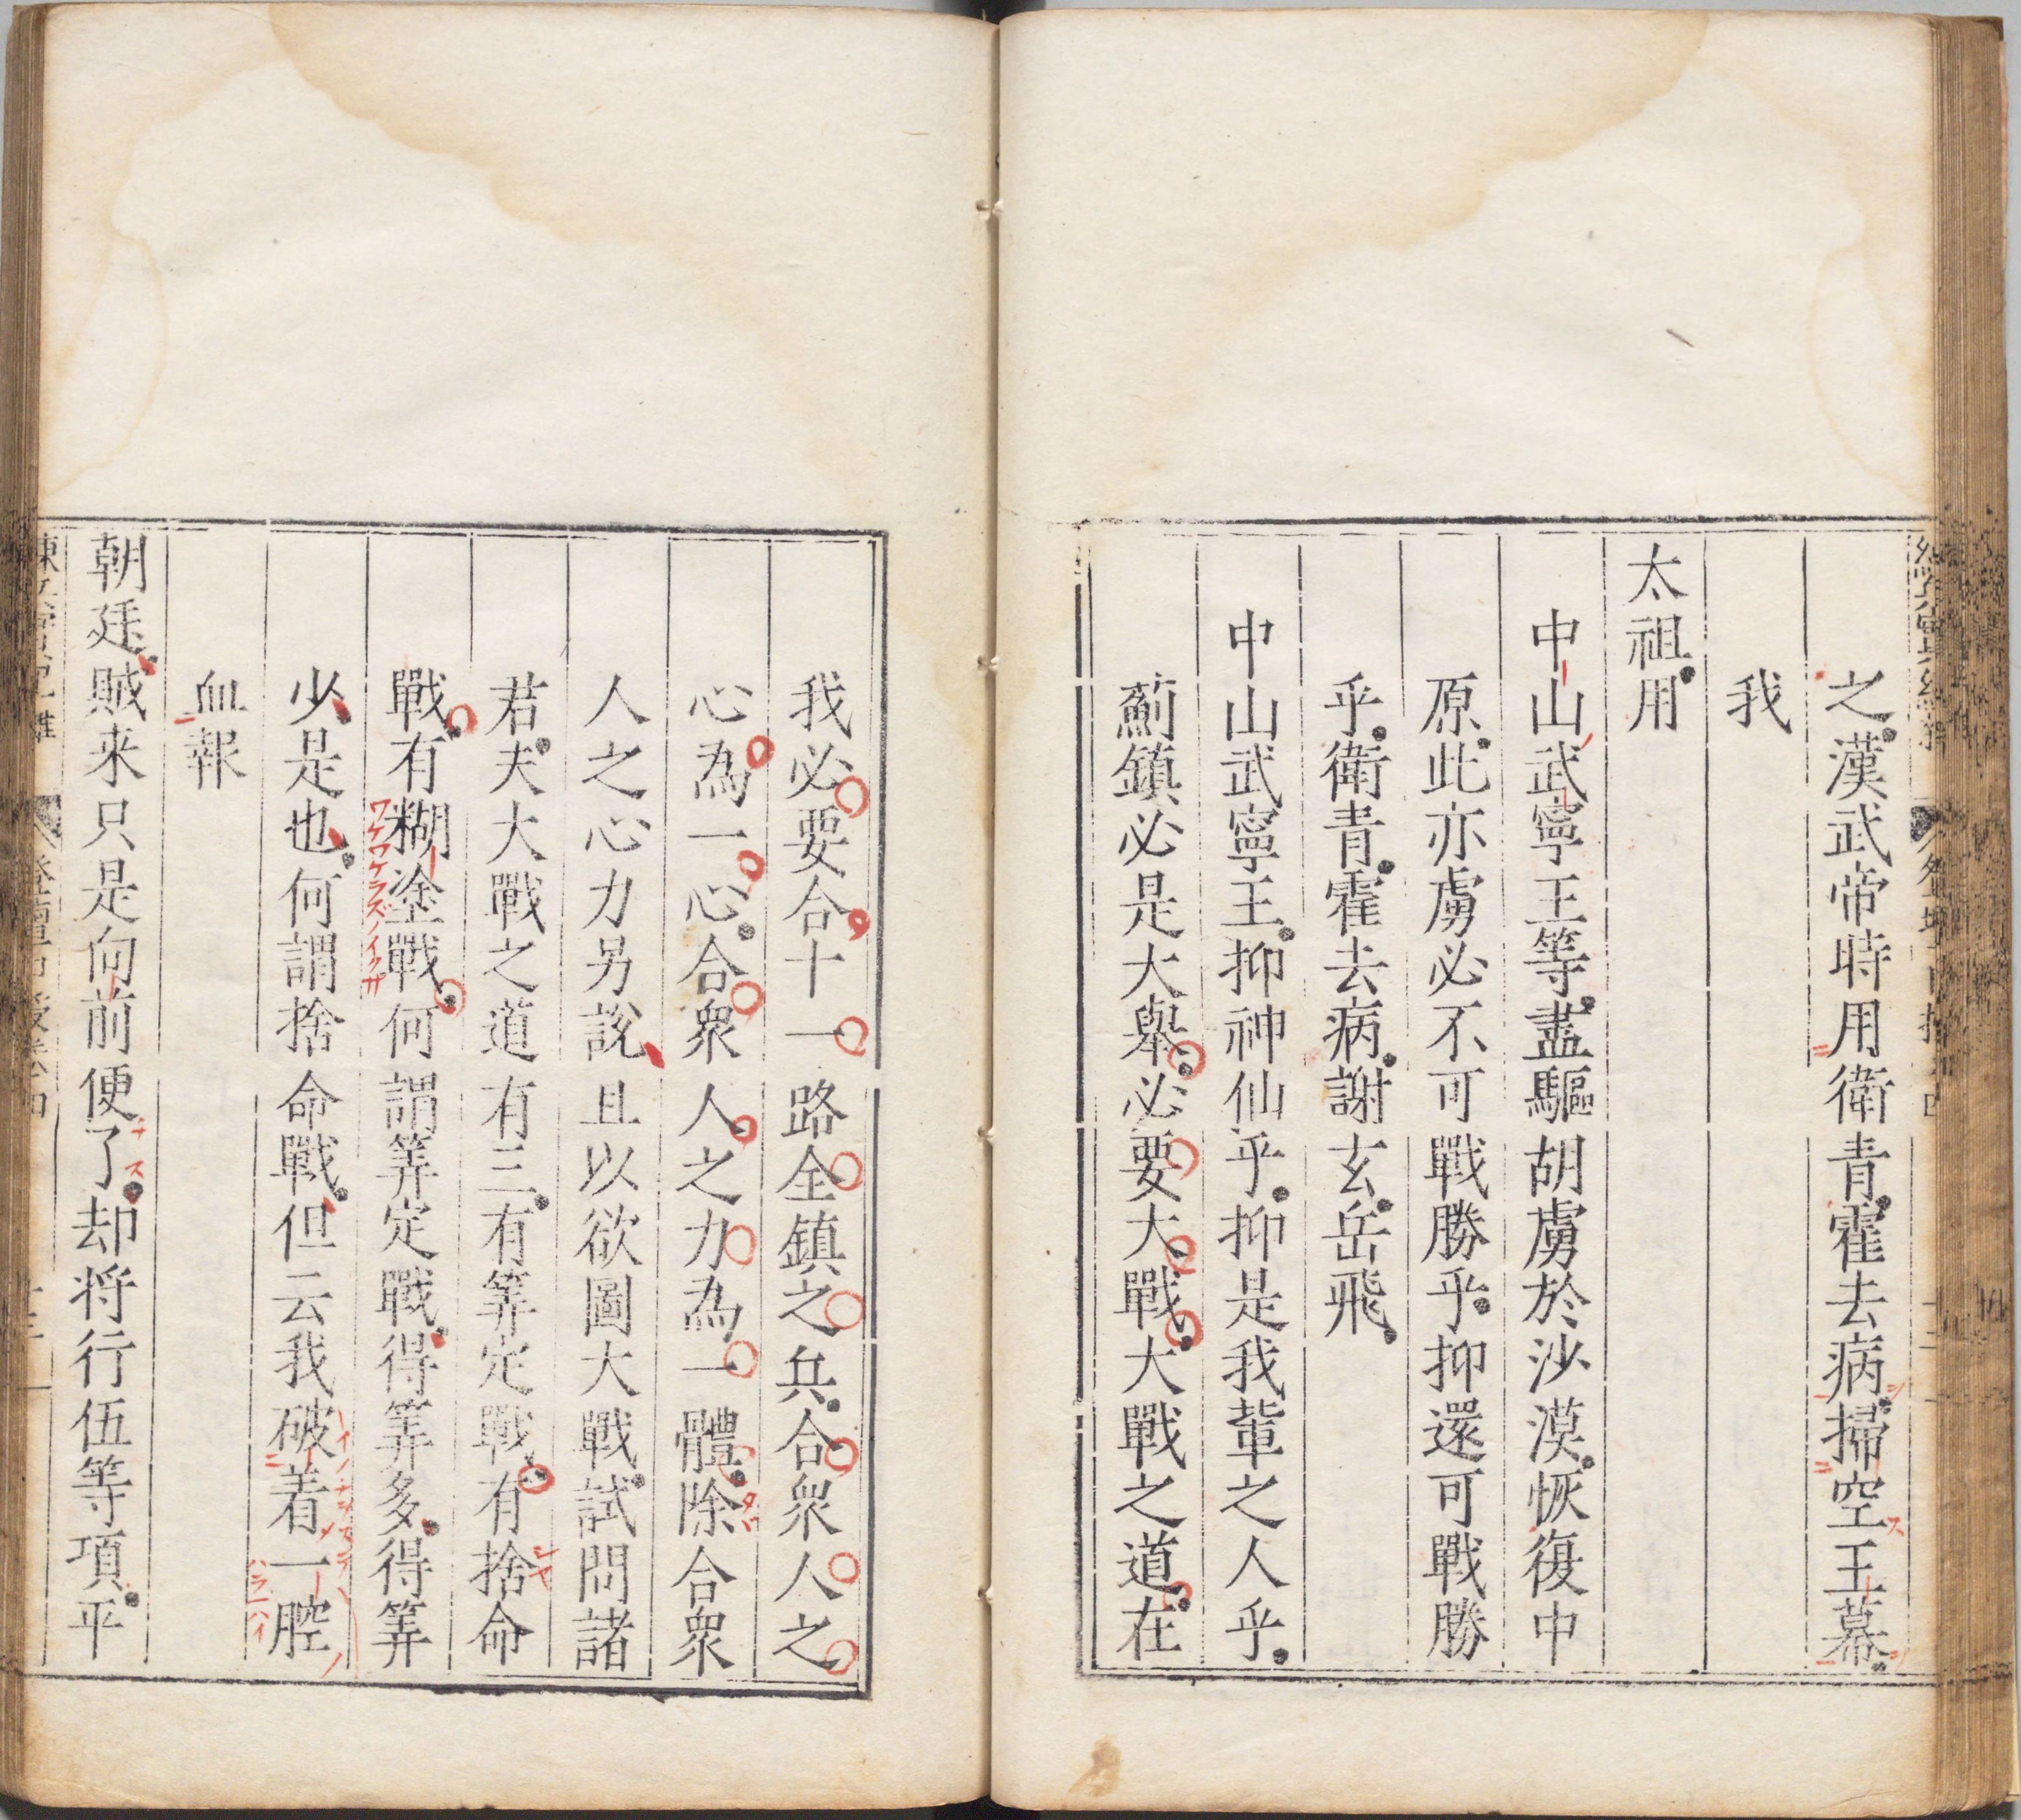 之漢武帝時用衛青霍去病掃空王幕
我
太祖用
中山武寧王等盡驅胡虜於沙漠恢復中
原此亦虜必不可戰勝乎抑還可戰勝
乎衛青霍去病謝玄岳飛
中山武寧王抑神仙乎抑是我輩之人乎
薊鎮必是大舉必要大戰大戰之道在
我必要合十一路全鎮之兵合衆人之
心為一心合衆人之力為一體除合衆
人之心力另說且以欲圖大戰試問諸
君夫大戰之道有三有筭定戰有捨命
戰有糊塗戰何謂筭定戰得筭多得筭
ワケワケラズノイクサ
少是也何謂捨命戰但云我破着一腔
ハライハイ
血報
朝廷賊来只是向前便了却将行伍等項平